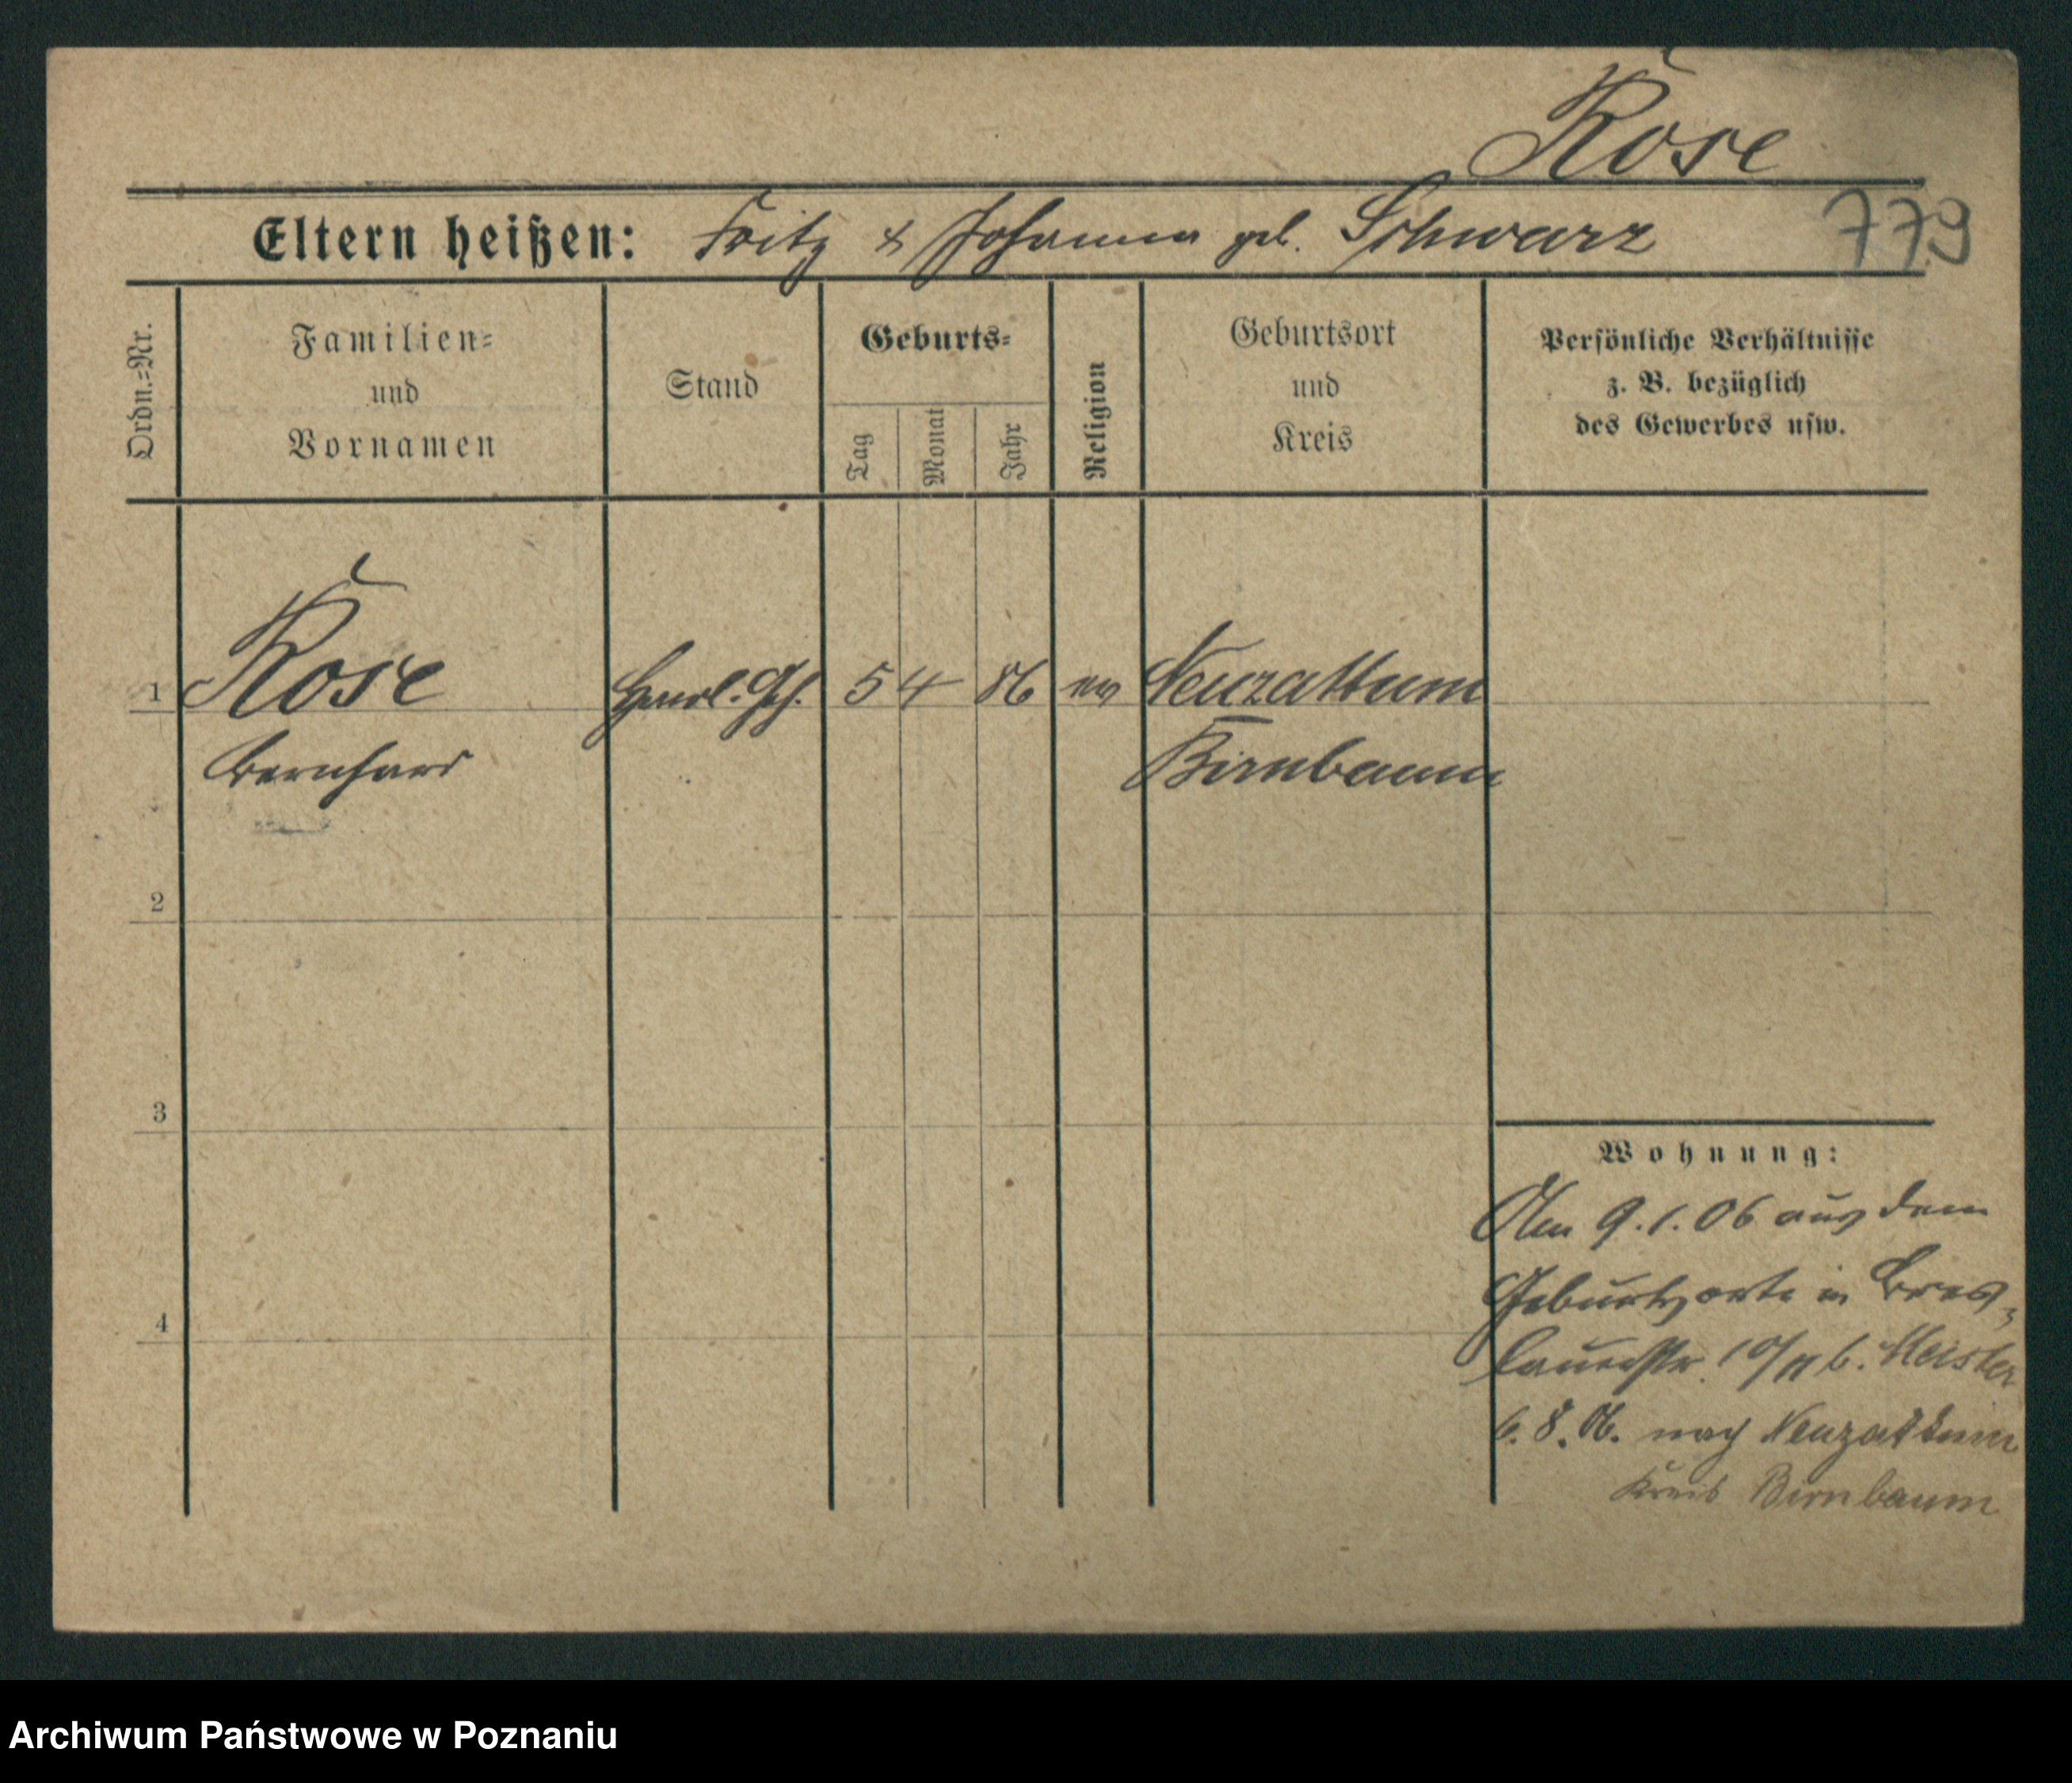 Rose
Eltern heißen: Fritz & Johanna geb. Schwarz 779
Ordn.=Nr.
Familien=
und
Vornamen
Stand
Geburts=
Tag
Monat
Jahr
Religion
Geburtsort
und
Kreis
Persönliche Verhältnisse
z. B. bezüglich
des Gewerbes usw.
1 Rose 5 4 86 ev Neuzattum
Bernhard Birnbaum
2
3
4
Wohnung:
Am 9.1.06 aus dem
Geburtsorte in Bres-
lauerstr. 10/11 b. Meister
6.8.06. nach Neuzattum
Kreis Birnbaum
Archiwum Państwowe w Poznaniu